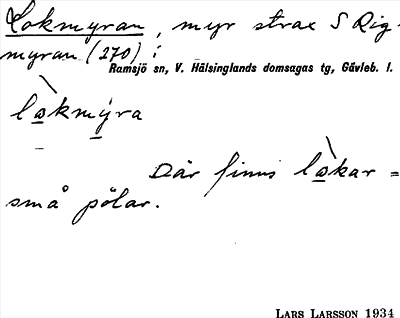 Lokmyran, myr strax S Rig-
myran (270) i
Ramsjö sn, V. Hälsinglands domsagas tg, Gävleb. l.
lo̱kmy̱ra
Där finns lo̱kar =
små pölar.
LARS LARSSON 1934